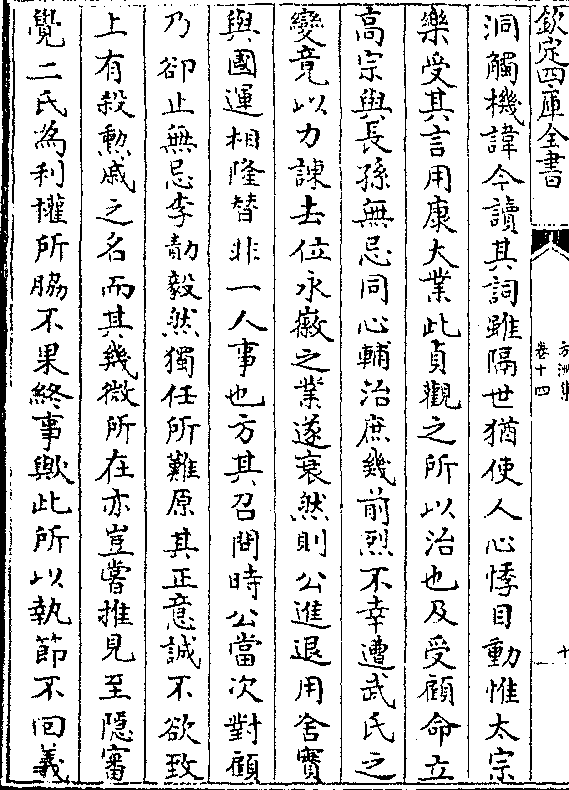 欽定四庫全書
方洲集
卷十四
十
洞觸機諱今讀其詞雖隔世猶使人心悸目動惟太宗
樂受其言用康大業此貞觀之所以治也及受顧命立
高宗與長孫無忌同心輔治庶幾前烈不幸遭武氏之
變竟以力諫去位永徽之業遂衰然則公進退用舍實
與國運相隆替非一人事也方其召問時公當次對顧
乃卻止無忌李勣毅然獨任所難原其正意誠不欲致
上有殺勲戚之名而其幾微所在亦豈嘗推見至隠審
覺二氏為利權所脇不果終事歟此所以執節不回義